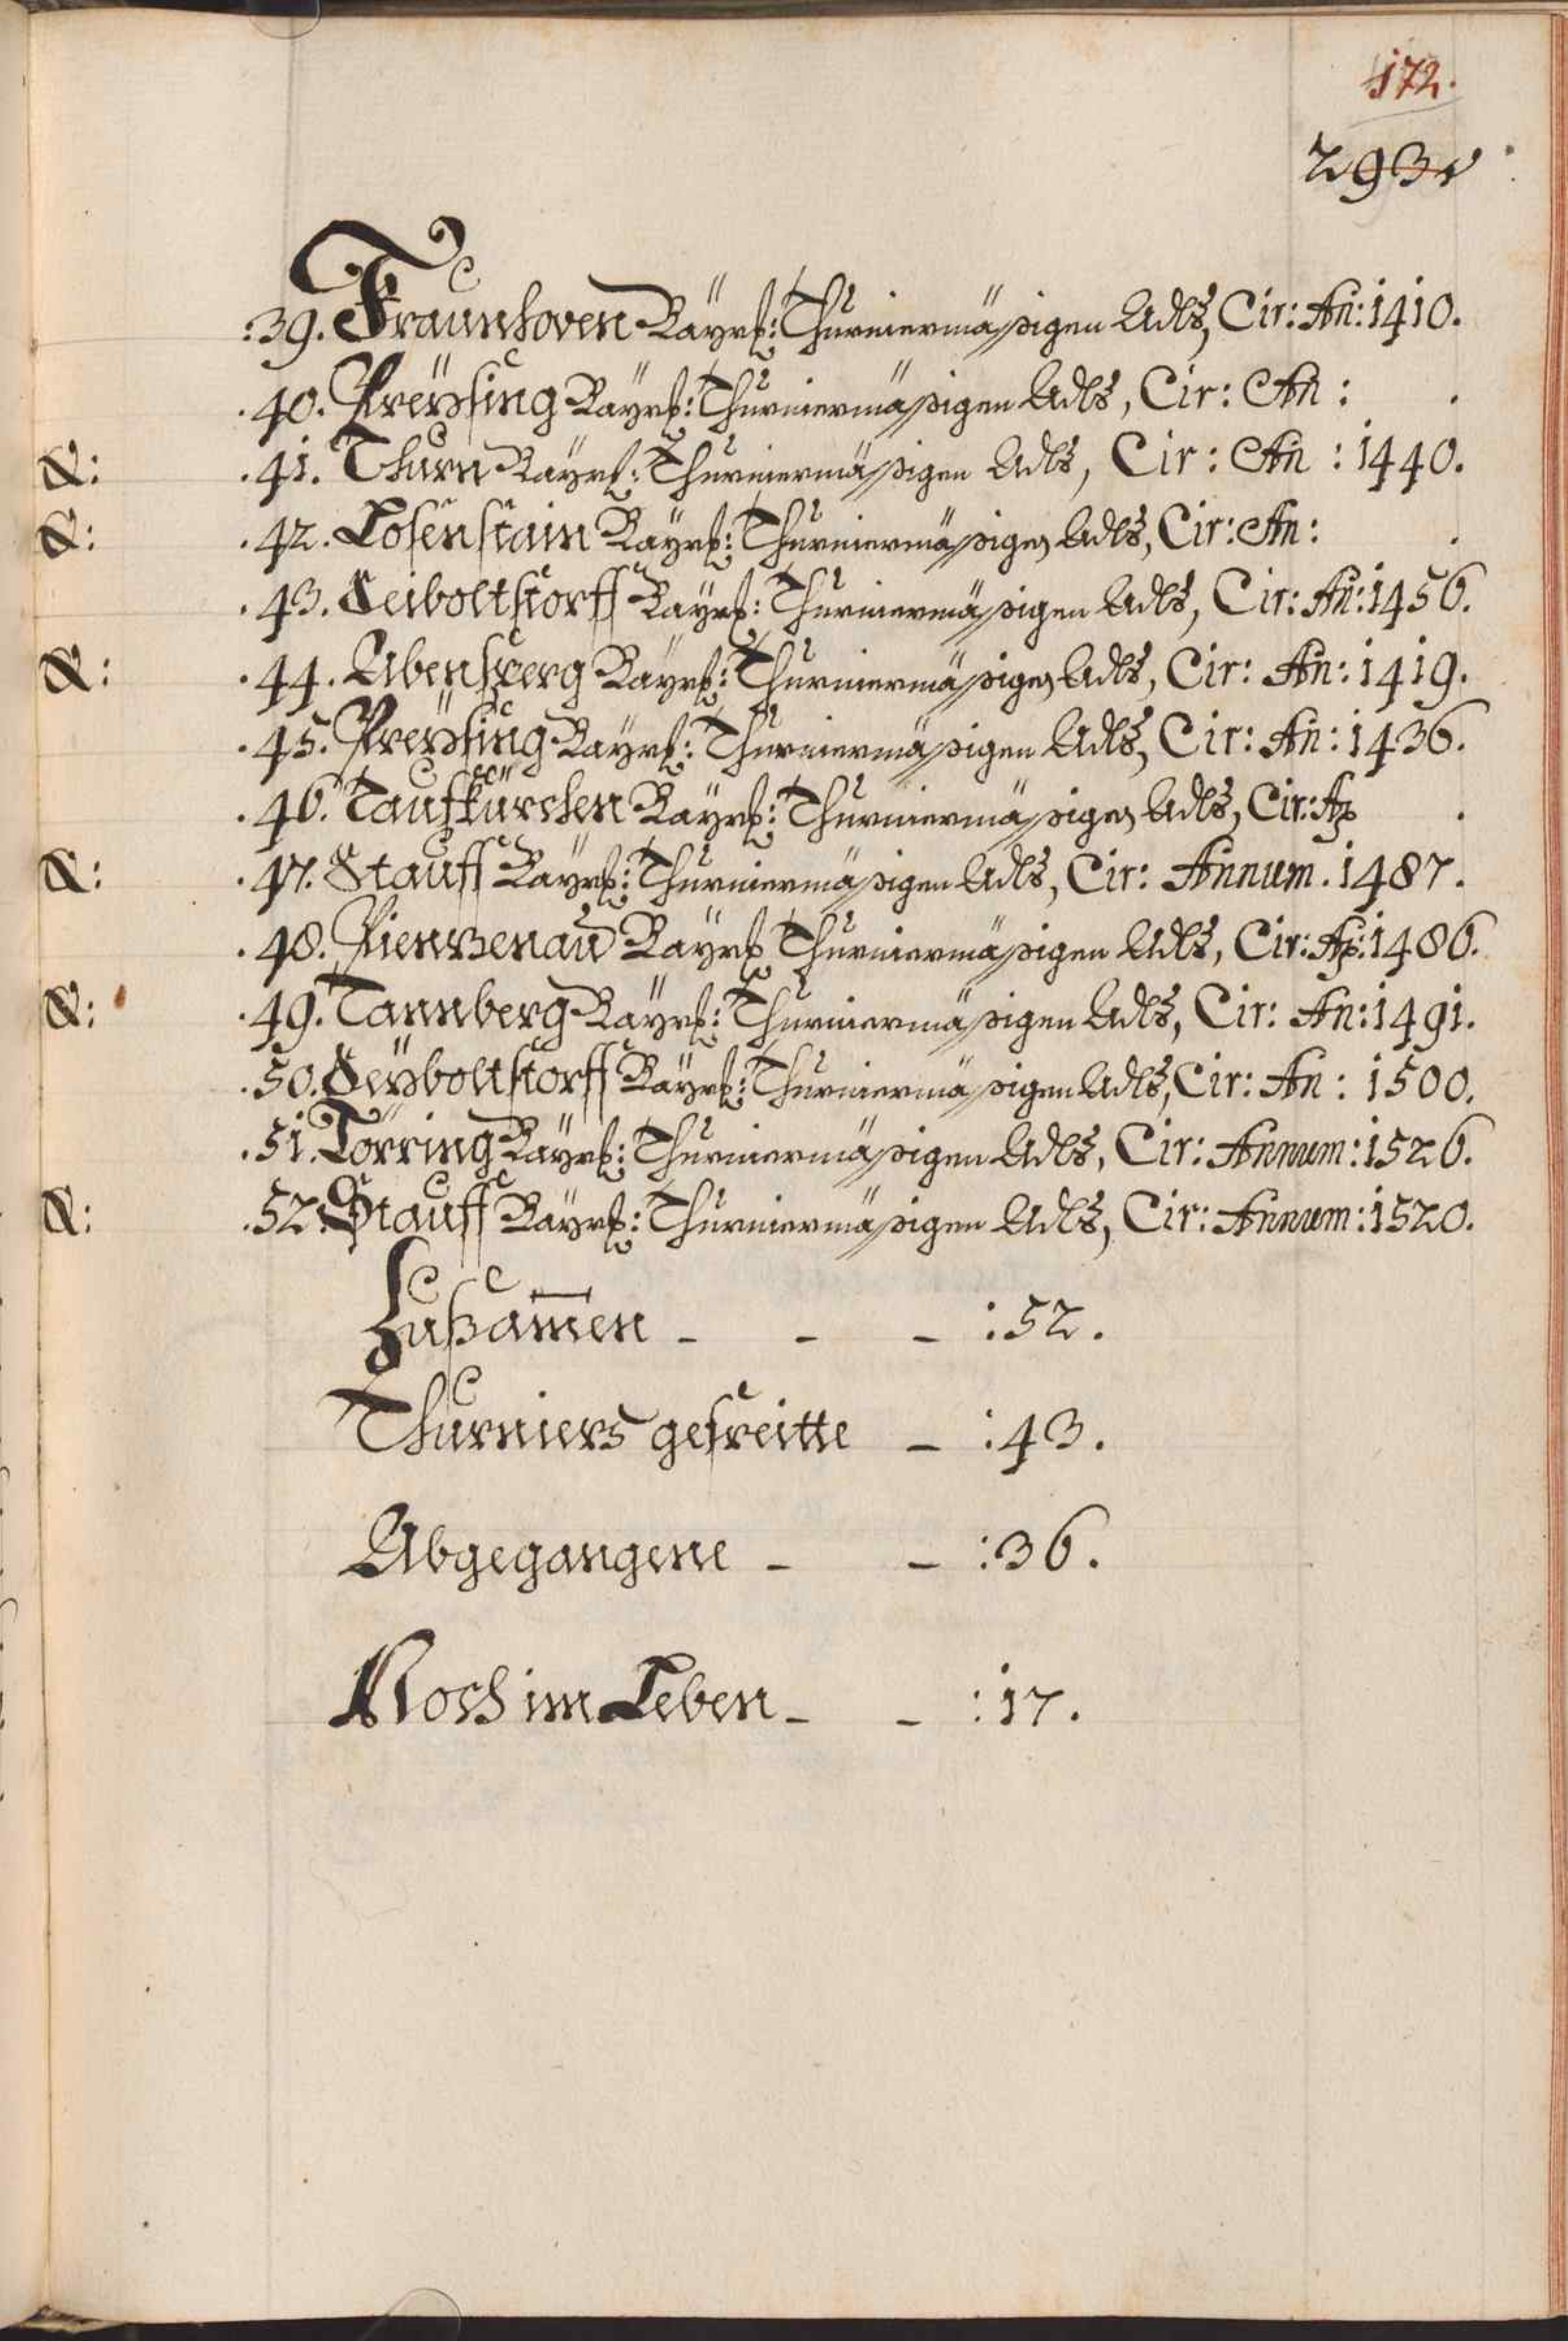 172.
293
:39. Fraunhoven Bayrß: Thurniermäßigen Adls, Cir: An: 1410.
.40. Preysing Bayrß: Thurniermäßigen Adls, Cir: An: .
&: .41. Thurn Bayrß: Thurniermäßigen Adls, Cir: An: 1440.
&: .42. Losenstain Bayrß: Thurniermäßigen Adls, Cir: An: .
.43. Seiboltstorff Bayrß: Thurniermäßigen Adls, Cir: An: 1456.
&: .44. Abensperg Bayrß: Thurniermäßigen Adls, Cir: An: 1419.
.45. Preysing Bayrß: Thurniermäßigen Adls, Cir: An: 1436.
.46. Taufkürchen Bayrß: Thurniermäßigen Adls, Cir: An .
&: .47. Stauff Bayrß: Thurniermäßigen Adls, Cir: Annum. 1487.
.48. Pienzenau Bayrß Thurniermäßigen Adls, Cir: An: 1486.
&: .49. Tannberg Bayrß: Thurniermäßigen Adls, Cir: An: 1491.
.50. Seyboltstorff Bayrß: Thurniermäßigen Adls, Cir: An: 1500.
.51. Törring Bayrß: Thurniermäßigen Adls, Cir: Annum: 1526.
&: .52. Stauff Bayrß: Thurniermäßigen Adls, Cir: Annum: 1520.
Zußam̄en - - - :52.
Thurniers gefreitte - :43.
Abgegangene - - :36.
Noch im Leben - - :17.